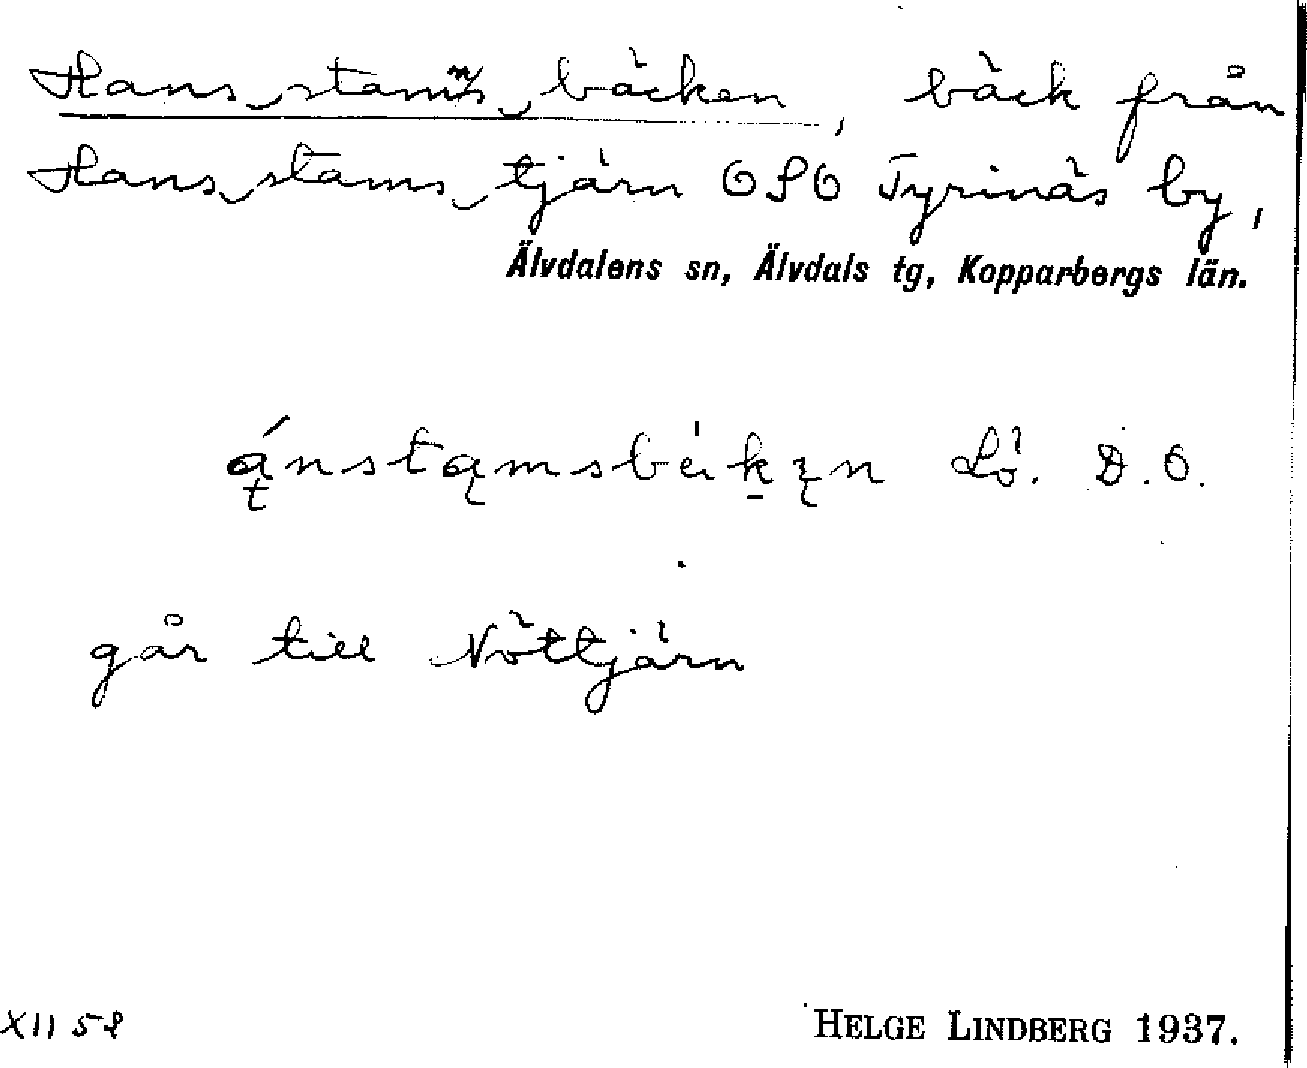 Hans‿stams‿bäcken, bäck från
Hans‿stams‿tjärn OSO Tyrinäs by,
Älvdalens sn, Älvdals tg, Kopparbergs län.
Lö. D.O.
går till Nöttjärn
XII 52
HELGE LINDBERG 1937.